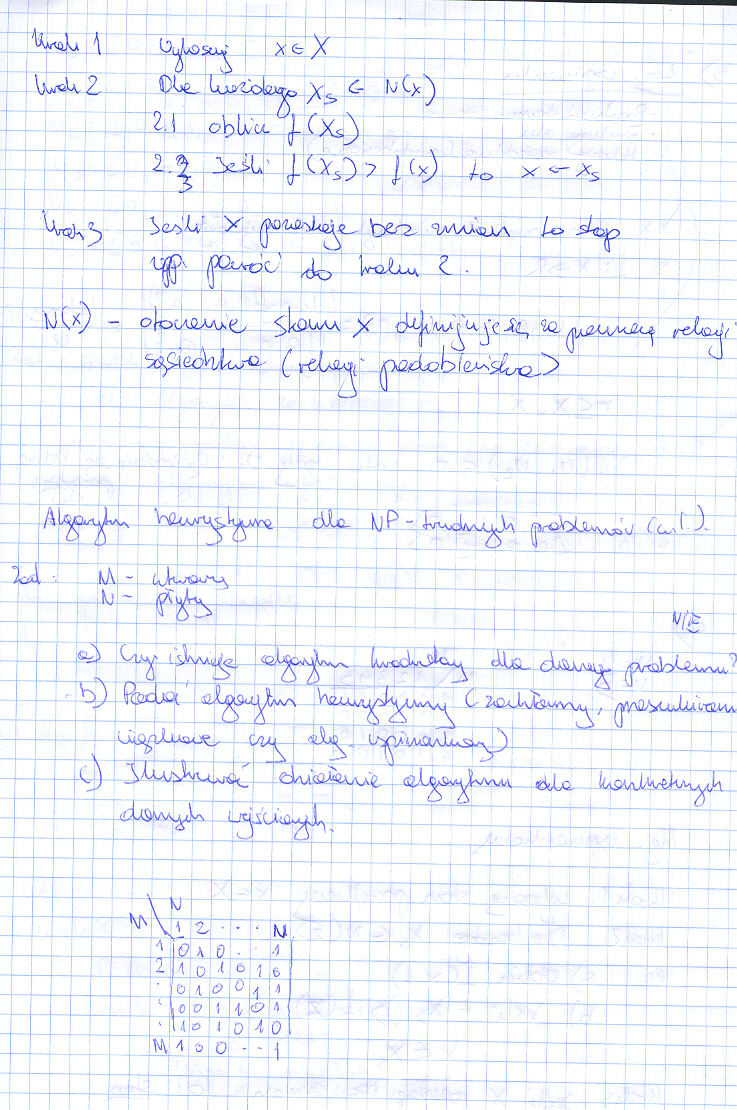 Krok 1 Wylosuj x ∈ X
Krok 2 Dla każdego xs ∈ N(x)
2.1 oblicz f(xs)
2.3 Jeśli f(xs) > f(x) to x ← xs
Krok 3 Jeśli x pozostaje bez zmian to stop
wpp. powróć do kroku 2.
N(x) – otoczenie stanu x definijuje się za pomocą relacji
sąsiedztwa (relacji podobieństwa)
Algorytm heurystyczne dla NP-trudnych problemów
Zad. M – utwory
N – płyty
NIE
a) Czy istnieje algorytm dokładny dla danego problemu?
b) Podać algorytm heurystyczny (zachłanny, przeszukiwanie
wiązkowe czy alg. wspinaczkowy)
c) Ilustrować działanie algorytmu dla konkretnych
danych wejściowych.
N
M 1 2 . . . N
1 0 1 0 . . 1
2 1 0 1 0 1 0
. 0 1 0 0 1 1
. 0 0 1 1 0 1
. 1 0 1 0 1 0
M 1 0 0 . . 1